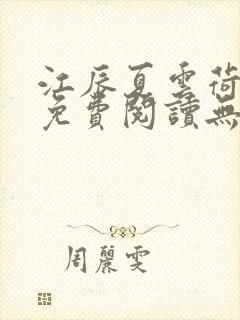 江辰夏雲荷
免費閱讀無
周麗雯